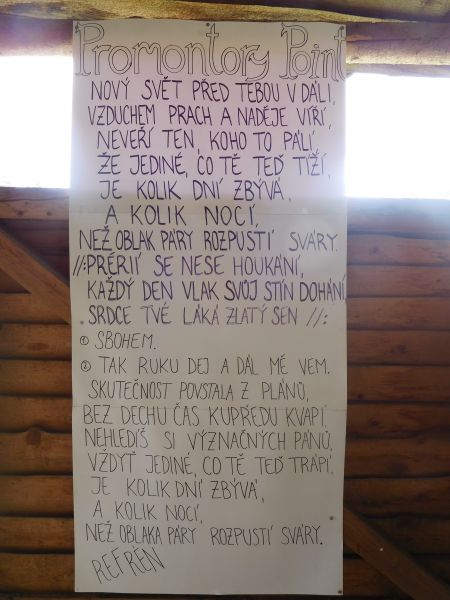 Promontory Point
NOVÝ SVĚT PŘED TEBOU V DÁLI,
VZDUCHEM PRACH A NADĚJE VÍŘÍ,
NEVĚŘÍ TEN, KOHO TO PÁLÍ
ŽE JEDINÉ, CO TĚ TEĎ TÍŽÍ,
JE KOLIK DNÍ ZBÝVÁ,
A KOLIK NOCÍ,
NEŽ OBLAK PÁRY ROZPUSTÍ SVÁRY.
//:PRÉRIÍ SE NESE HOUKÁNÍ,
KAŽDÝ DEN VLAK SVŮJ STÍN DOHÁNÍ,
SRDCE TVÉ LÁKÁ ZLATÝ SEN //:
① SBOHEM.
② TAK RUKU DEJ A DÁL MĚ VEM.
SKUTEČNOST POVSTALA Z PLÁNŮ,
BEZ DECHU ČAS KUPŘEDU KVAPÍ.
NEHLEDÍŠ SI VÝZNAČNÝCH PÁNŮ,
VŽDYŤ JEDINÉ, CO TĚ TEĎ TRÁPÍ.
JE KOLIK DNÍ ZBÝVÁ,
A KOLIK NOCÍ,
NEŽ OBLAKA PÁRY ROZPUSTÍ SVÁRY.
REFRÉN